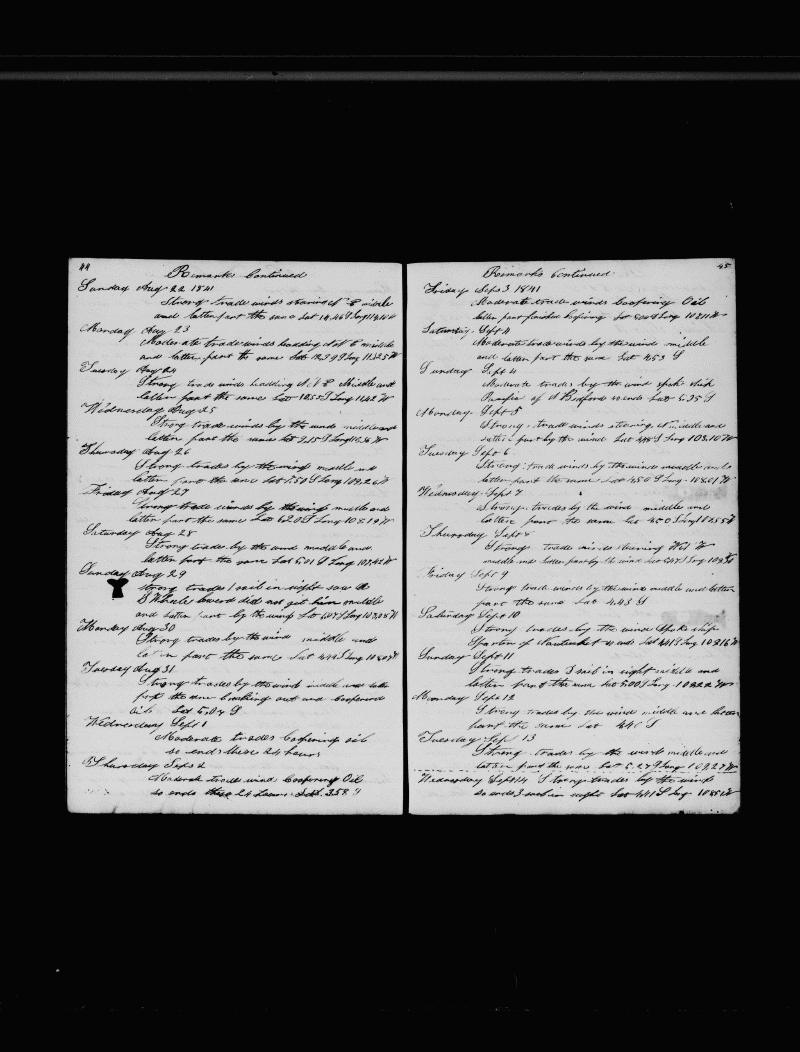 44
Remarks Continued
Sunday Aug 22 1841
Strong trade winds E middle
and latter part the same Lat 14.46 S Long
Monday Aug 23
Moderate trade winds heading middle
and latter part the same Lat Long 113.25 W
Tuesday Aug 24
Strong trade winds heading Middle and
latter part the same Lat 10.55 S Long W
Wednesday Aug 25
Strong trade winds by the wind middle and
latter part the same Lat 9.15 S Long W
Thursday Aug 26
Strong trades by the wind middle and
latter part the same Lat 7.50 S Long 109.26 W
Friday Aug 27
Strong trade winds by the wind middle and
latter part the same Lat 6.20 S Long 108.19 W
Saturday Aug 28
Strong trades by the wind middle and
latter part the same Lat 5.01 S Long 107.42 W
Sunday Aug 29
Strong trades 1 sail in sight saw a
S Whale lowered did not get him middle
and latter part by the wind Lat S Long W
Monday Aug 30
Strong trades by the wind middle and
part the same Lat 4.44 S Long W
Tuesday Aug 31
Strong trades by the wind middle and latter
part the same breaking out and coopered
oil Lat S
Wednesday Sept 1
Moderate trades Coopering oil
so ends these 24 hours
Thursday Sept 2
Moderate trade wind Coopering Oil
so ends these 24 hours Lat 3.58 S
45
Remarks Continued
Friday Sept 3 1841
Moderate trade winds Coopering Oil
latter part finished Coopering Lat S Long W
Saturday Sept 4
Moderate trade winds by the wind middle
and latter part the same Lat 4.53 S
Sunday Sept 4
Moderate trades by the wind spoke ship
of N Bedford so ends Lat 5.35 S
Monday Sept 5
Strong trade winds middle and
latter part by the wind Lat S Long 108.10 W
Tuesday Sept 6
Strong trade winds by the wind middle and
latter part the same Lat 4.50 S Long 108.01 W
Wednesday Sept 7
Strong trades by the wind middle and
latter part the same Lat 4.50 S Long W
Thursday Sept 8
Strong trade winds steering W
middle and latter part by the wind Lat S Long
Friday Sept 9
Strong trade winds by the wind middle and latter
part the same Lat 4.45 S
Saturday Sept 10
Strong trades by the wind Spoke ship
Spartan of Nantucket so ends Lat 4.41 S Long 108.16 W
Sunday Sept 11
Strong trades 3 sail in sight middle and
latter part the same Lat 5.00 S Long 108.22 W
Monday Sept 12
Strong trades by the wind middle and latter
part the same Lat S
Tuesday Sep 13
Strong trades by the wind middle and
latter part the same Lat 5.27 S Long 109.27 W
Wednesday Sept 14 Strong trades by the wind
so ends 3 sail in sight Lat 4.41 S Long W